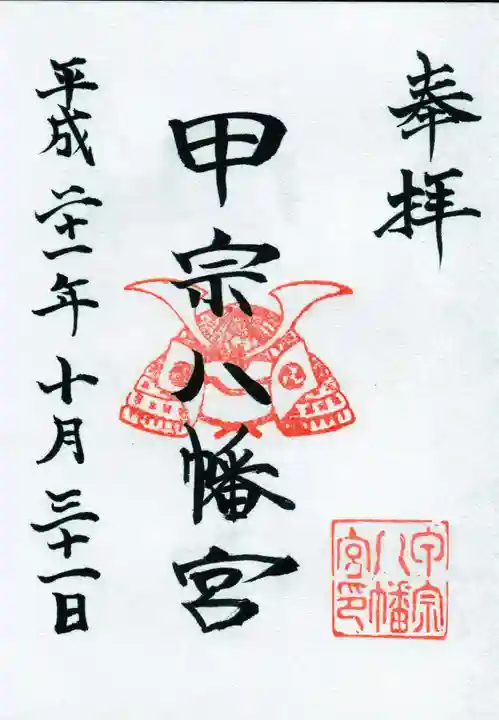 奉拝
甲宗八幡宮
平成二十一年十月三十一日
甲宗八幡宮印